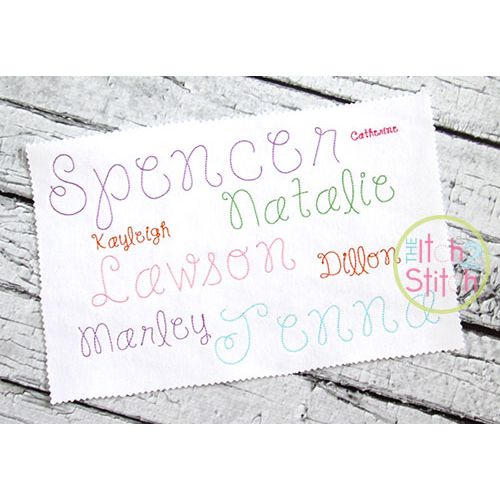 Spencer
Catherine
Natalie
Kayleigh
Lawson
Dillon
Marley
Jenna
THE
Itch 2
Stitch